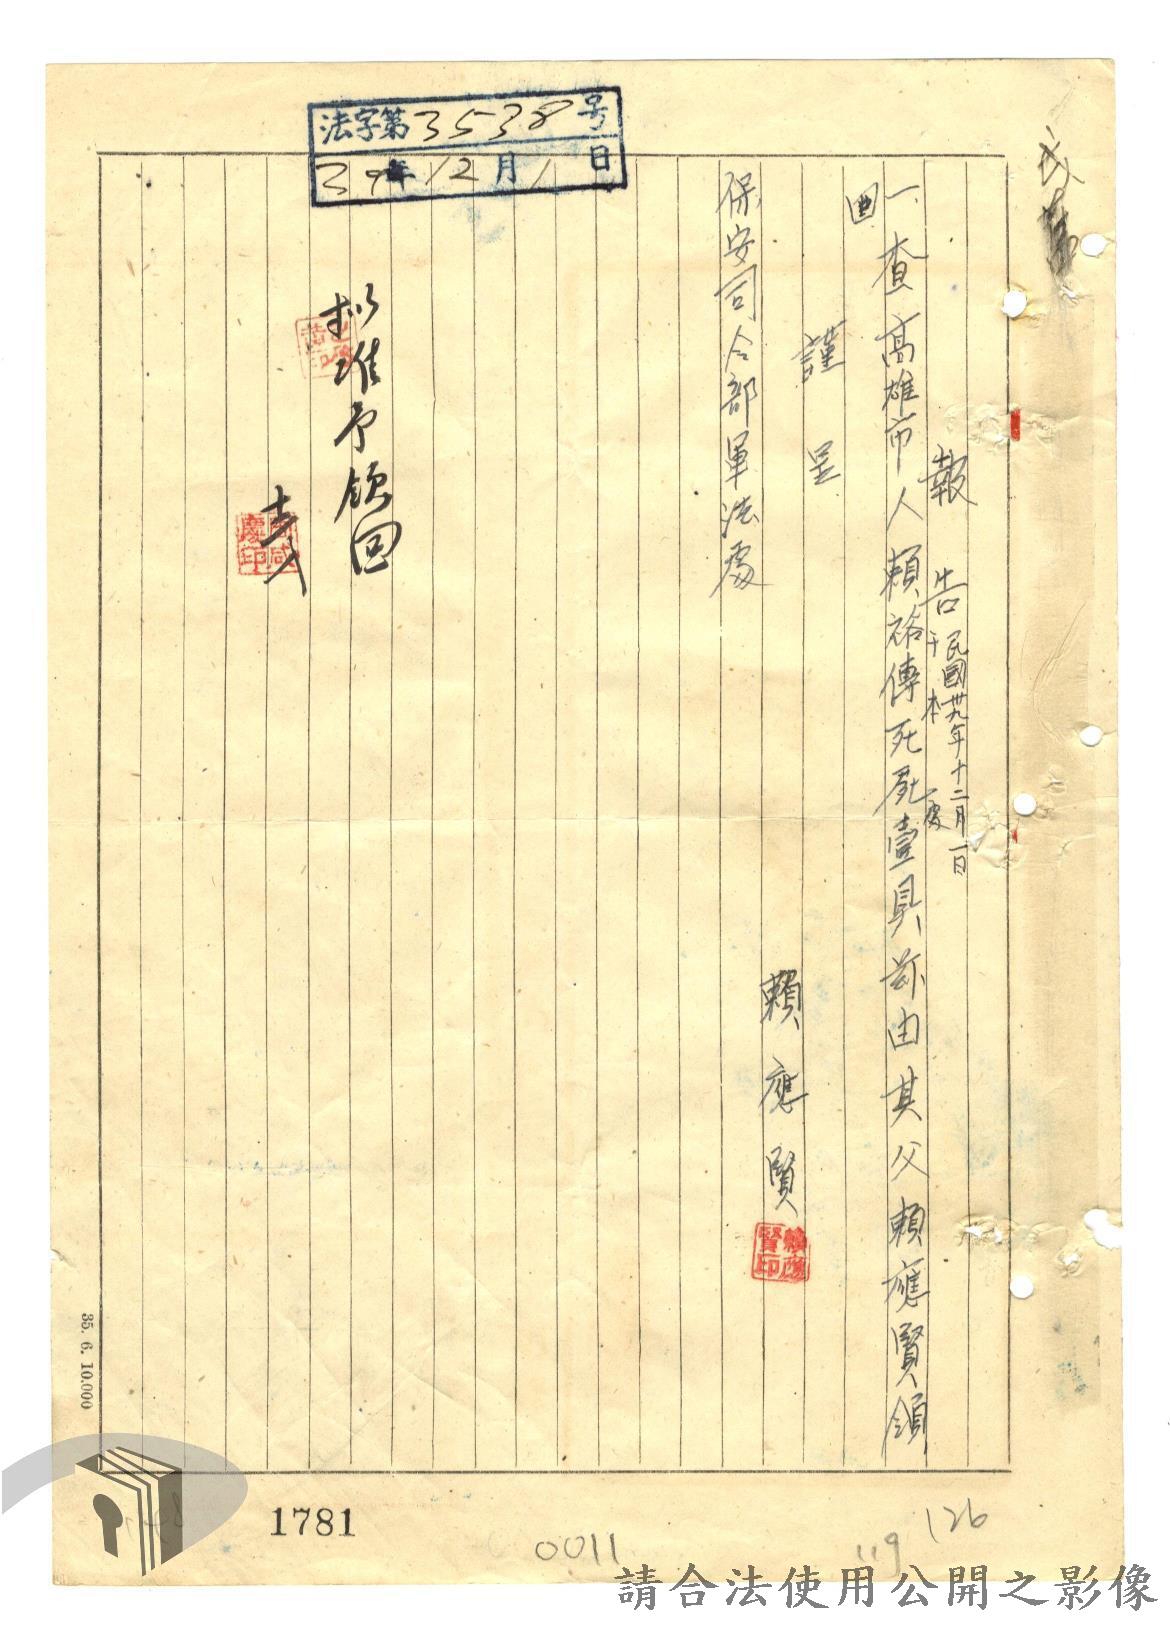 法字第3538号
39年12月1日
報告 民國卅九年十二月一日
于本處
一、查高雄市人賴裕傳死屍壹具茲由其父賴應賢領
回
謹呈
保安司令部軍法處
賴應賢
擬准予領回
1781
0011
119
126
35. 6. 10.000
請合法使用公開之影像